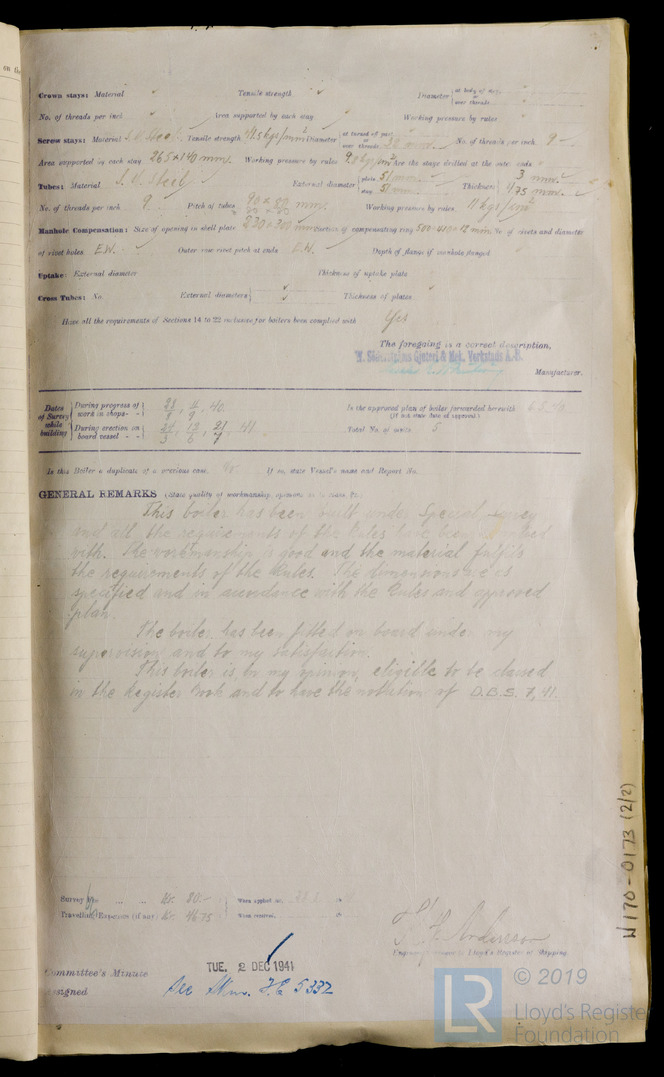 on the
Crown stays: Material Tensile strength Diameter at body of stay, or over threads
No. of threads per inch Area supported by each stay Working pressure by rules
Screw stays: Material S.M. Steel Tensile strength Diameter at turned off part, or over threads No. of threads per inch 9
Area supported by each stay 265 x 140 mm. Working pressure by rules Are the stays drilled at the outer ends
Tubes: Material S.M. Steel External diameter plain 51 mm. stay 51 mm. Thickness 3 mm. 4,75 mm.
No. of threads per inch 9 Pitch of tubes 90 x 80 mm. Working pressure by rules 11 kgs/cm2
Manhole Compensation: Size of opening in shell plate 220 x 300 mm Section of compensating ring No. of rivets and diameter
of rivet holes E.W. Outer row rivet pitch at ends E.W. Depth of flange if manhole flanged
Uptake: External diameter Thickness of uptake plate
Cross Tubes: No. External diameters Thickness of plates
Have all the requirements of Sections 14 to 22 inclusive for boilers been complied with Yes
The foregoing is a correct description,
Manufacturer.
Dates of Survey while building During progress of work in shops - - During erection on board vessel - -
Is the approved plan of boiler forwarded herewith 6.5.40
(If not state date of approval.)
Total No. of visits 5
Is this Boiler a duplicate of a previous case. No If so, state Vessel's name and Report No.
GENERAL REMARKS (State quality of workmanship, opinions as to class, &c.)
This boiler has been built under Special survey
and all the requirements of the Rules have been complied
with. The workmanship is good and the material fulfils
the requirements of the Rules. The dimensions are as
specified and in accordance with the Rules and approved
plan.
The boiler has been fitted on board under my
supervision and to my satisfaction.
This boiler is, in my opinion, eligible to be classed
in the Register Book and to have the notation of D.B.S. 7,41.
Survey Fee ... ... Kr. 80.- When applied for,
Travelling Expenses (if any) Kr. 46.75 When received,
Andersson
Engineer Surveyor to Lloyd's Register of Shipping
Committee's Minute TUE. 2 DEC 1941
Assigned See F.E. 5332
W170-0173 (2/2)
LR © 2019
Lloyd's Register
Foundation